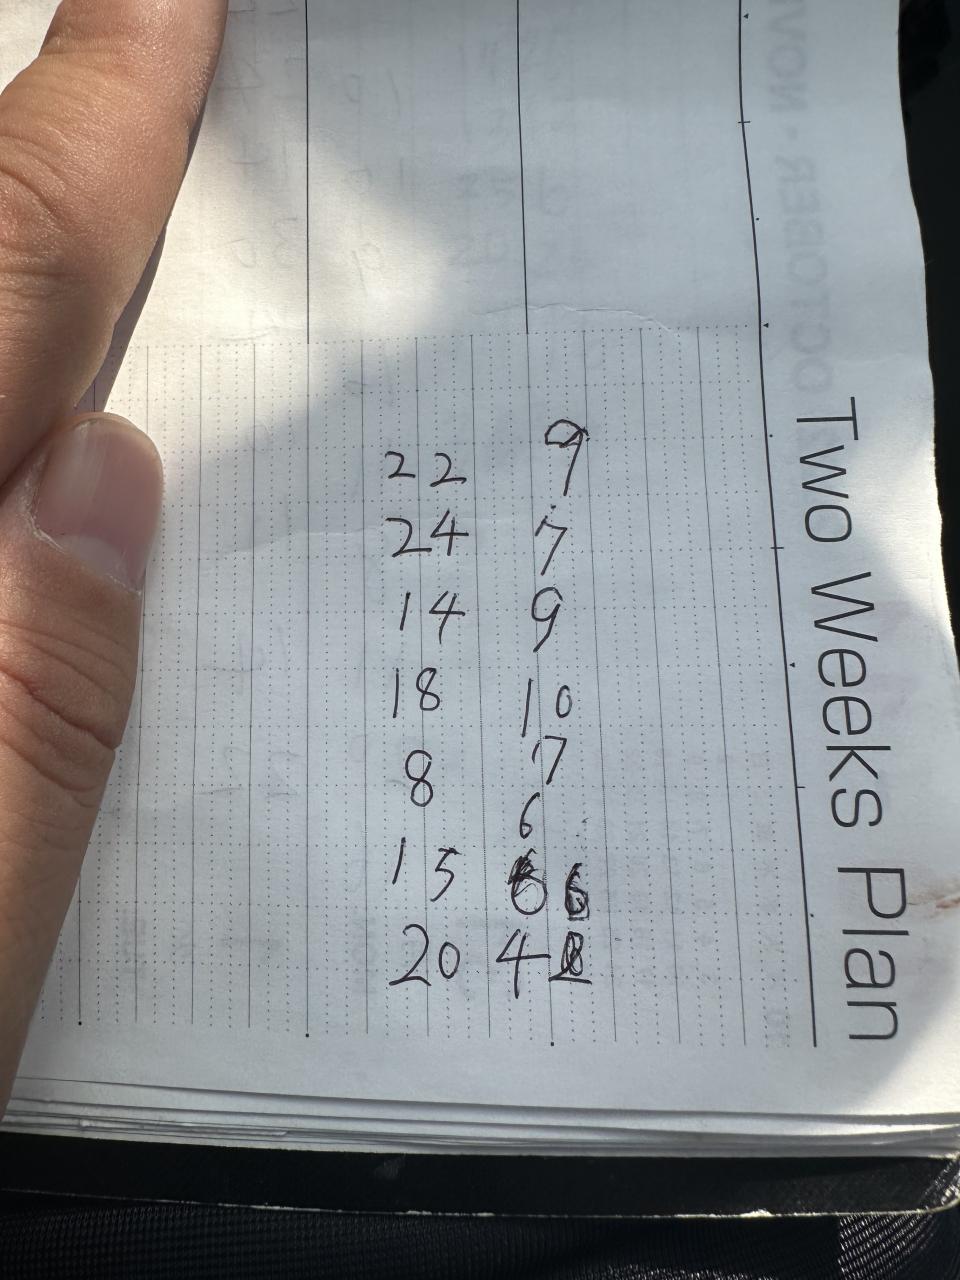 OCTOBER - NOV
Two Weeks Plan
22 9
24 7
14 9
18 10
8 7
6
15
20 4